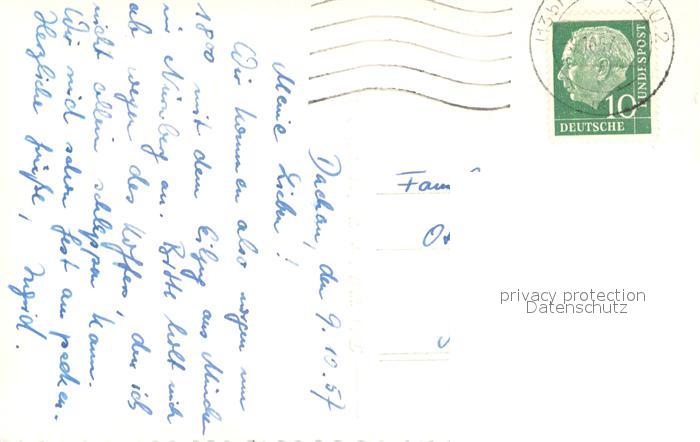 Dachau, den 9.10.57
Meine Lieben!
Wir kommen also morgen um
1800 mit dem Eilzug aus München
in Nürnberg an. Bitte holt mich
ab wegen des Koffers, den ich
nicht allein schleppen kann.
Wir sind schon fest am packen.
Herzliche Grüße, Ingrid.
Fam
10
DEUTSCHE
BUNDESPOST
AU 2
privacy protection
Datenschutz